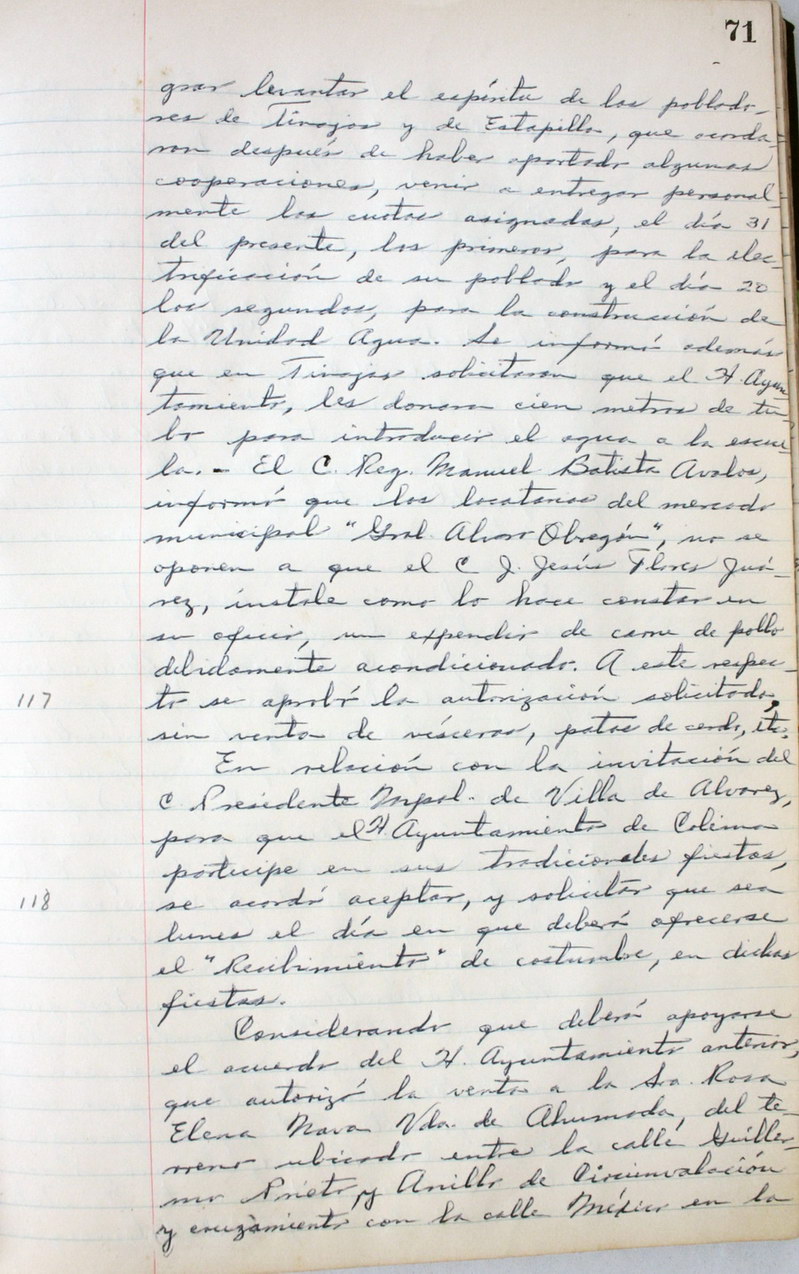 71
grar levantar el espíritu de los poblado-
res de Tinajas y de Estapilla, que acorda-
ron después de haber aportado algunas
cooperaciones, venir a entregar personal-
mente las cuotas asignadas, el día 31
del presente, los primeros, para la elec-
trificación de su poblado y el día 20
los segundos, para la construcción de
la Unidad Agua. Se informó además
que en Tinajas solicitaron que el H. Ayun-
tamiento, les donara cien metros de tu-
bo para introducir el agua a la escue-
la.- El C. Reg. Manuel Batista Avalos,
informó que los locatarios del mercado
municipal "Gral. Alvaro Obregón", no se
oponen a que el C J. Jesús Flores Juá-
rez, instale como lo hace constar en
su oficio, un expendio de carne de pollo
debidamente acondicionado. A este respec-
117 to se aprobó la autorización solicitada,
sin venta de vísceras, patas de cerdo, etc.
En relación con la invitación del
C. Presidente Mpal. de Villa de Alvarez,
para que el H Ayuntamiento de Colima
participe en sus tradicionales fiestas,
118 se acordó aceptar, y solicitar que sea
lunes el día en que deberá ofrecerse
el "Recibimiento" de costumbre, en dichas
fiestas.
Considerando que deberá apoyarse
el acuerdo del H. Ayuntamiento anterior,
que autorizó la venta a la Sra. Rosa
Elena Nava Vda. de Ahumada, del te-
rreno ubicado entre la calle Guiller-
mo Prieto, y Anillo de Circunvalación
y cruzamiento con la calle México en la